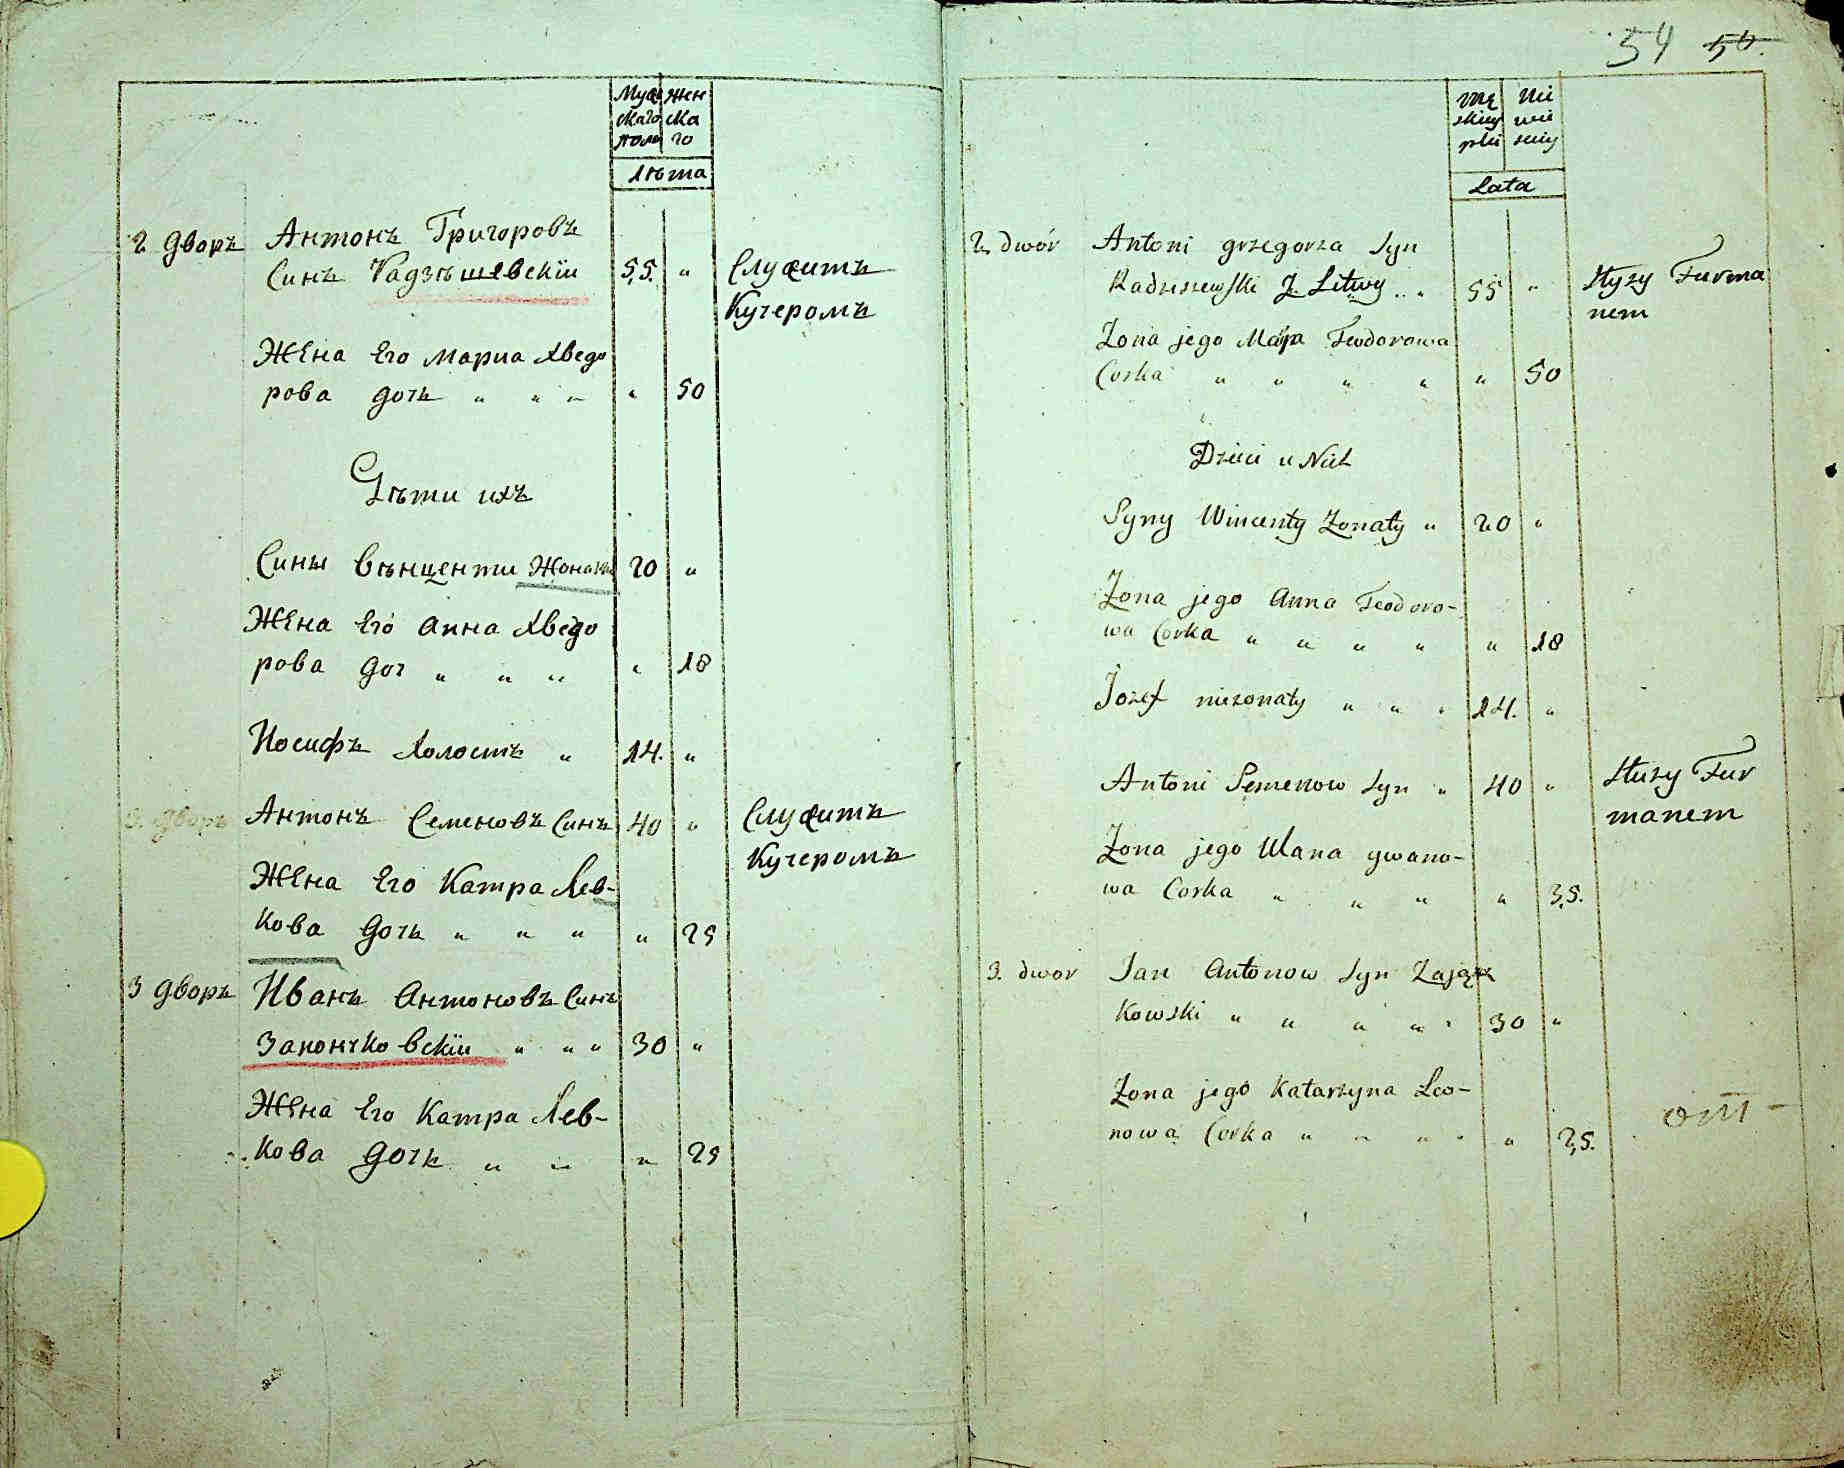 Мужскаго пола
Женскаго
Лѣта
2 дворъ Антонъ Григоровъ
Синъ Радзѣшевскіи 55. " Служитъ
Кучеромъ
Жена Его Мариа Хведо
рова дочь " " " " 50
Дѣти ихъ
Сины Вѣнценти Жонаты 20 "
Жена Его Анна Хведо
рова доч " " " " 18
Иосифъ Холостъ " 14. "
3. дворъ Антонъ Семеновъ Синъ 40 " Служитъ
Кучеромъ
Жена Его Катра Лев-
кова дочь " " " " 25
3 дворъ Иванъ Антоновъ Синъ
Заиончковскіи " " " 30 "
Жена Его Катра Лев-
кова дочь " " " 25
54 56.
Mę
skiey
płci
Nie
wie
sciey
Lata
2. dwór Antoni grzegorza Syn
Radziszewski Z Litwy .. " 55 " Służy Furma
nem
Zona jego Marja Teodorowa
Corka " " " " " 50
Dzieci u Nich
Syny Wincenty Zonaty " 20 "
Zona jego Anna Teodoro-
wa Corka " " " " " 18
Jozef niezonaty " " " 14. "
Antoni Semenow Syn " 40 " Służy Fur
manem
Zona jego Ulana ywano-
wa Corka " " " " 35.
3. dwor Jan Antonow Syn Zając
Kowski " " " " " 30 "
Zona jego Katarzyna Leo-
nowa Corka " " " " " 25.